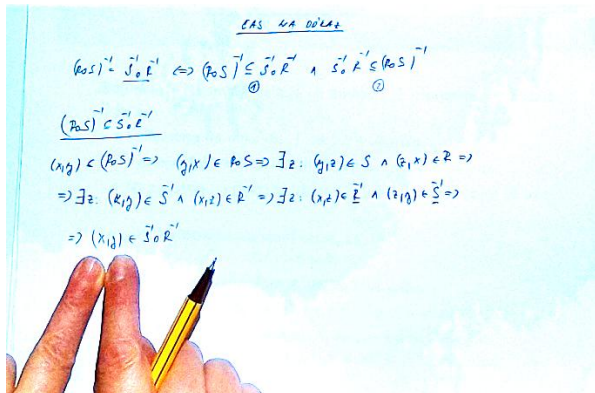 ČAS NA DÔKAZ
(R∘S)⁻¹ = S⁻¹∘R⁻¹ <=> (R∘S)⁻¹ ⊆ S⁻¹∘R⁻¹ ∧ S⁻¹∘R⁻¹ ⊆ (R∘S)⁻¹
① ②
(R∘S)⁻¹ ⊂ S⁻¹∘R⁻¹
(x,y) ∈ (R∘S)⁻¹ => (y,x) ∈ R∘S => ∃z: (y,z) ∈ S ∧ (z,x) ∈ R =>
=> ∃z: (z,y) ∈ S⁻¹ ∧ (x,z) ∈ R⁻¹ => ∃z: (x,z) ∈ R⁻¹ ∧ (z,y) ∈ S⁻¹ =>
=> (x,y) ∈ S⁻¹∘R⁻¹